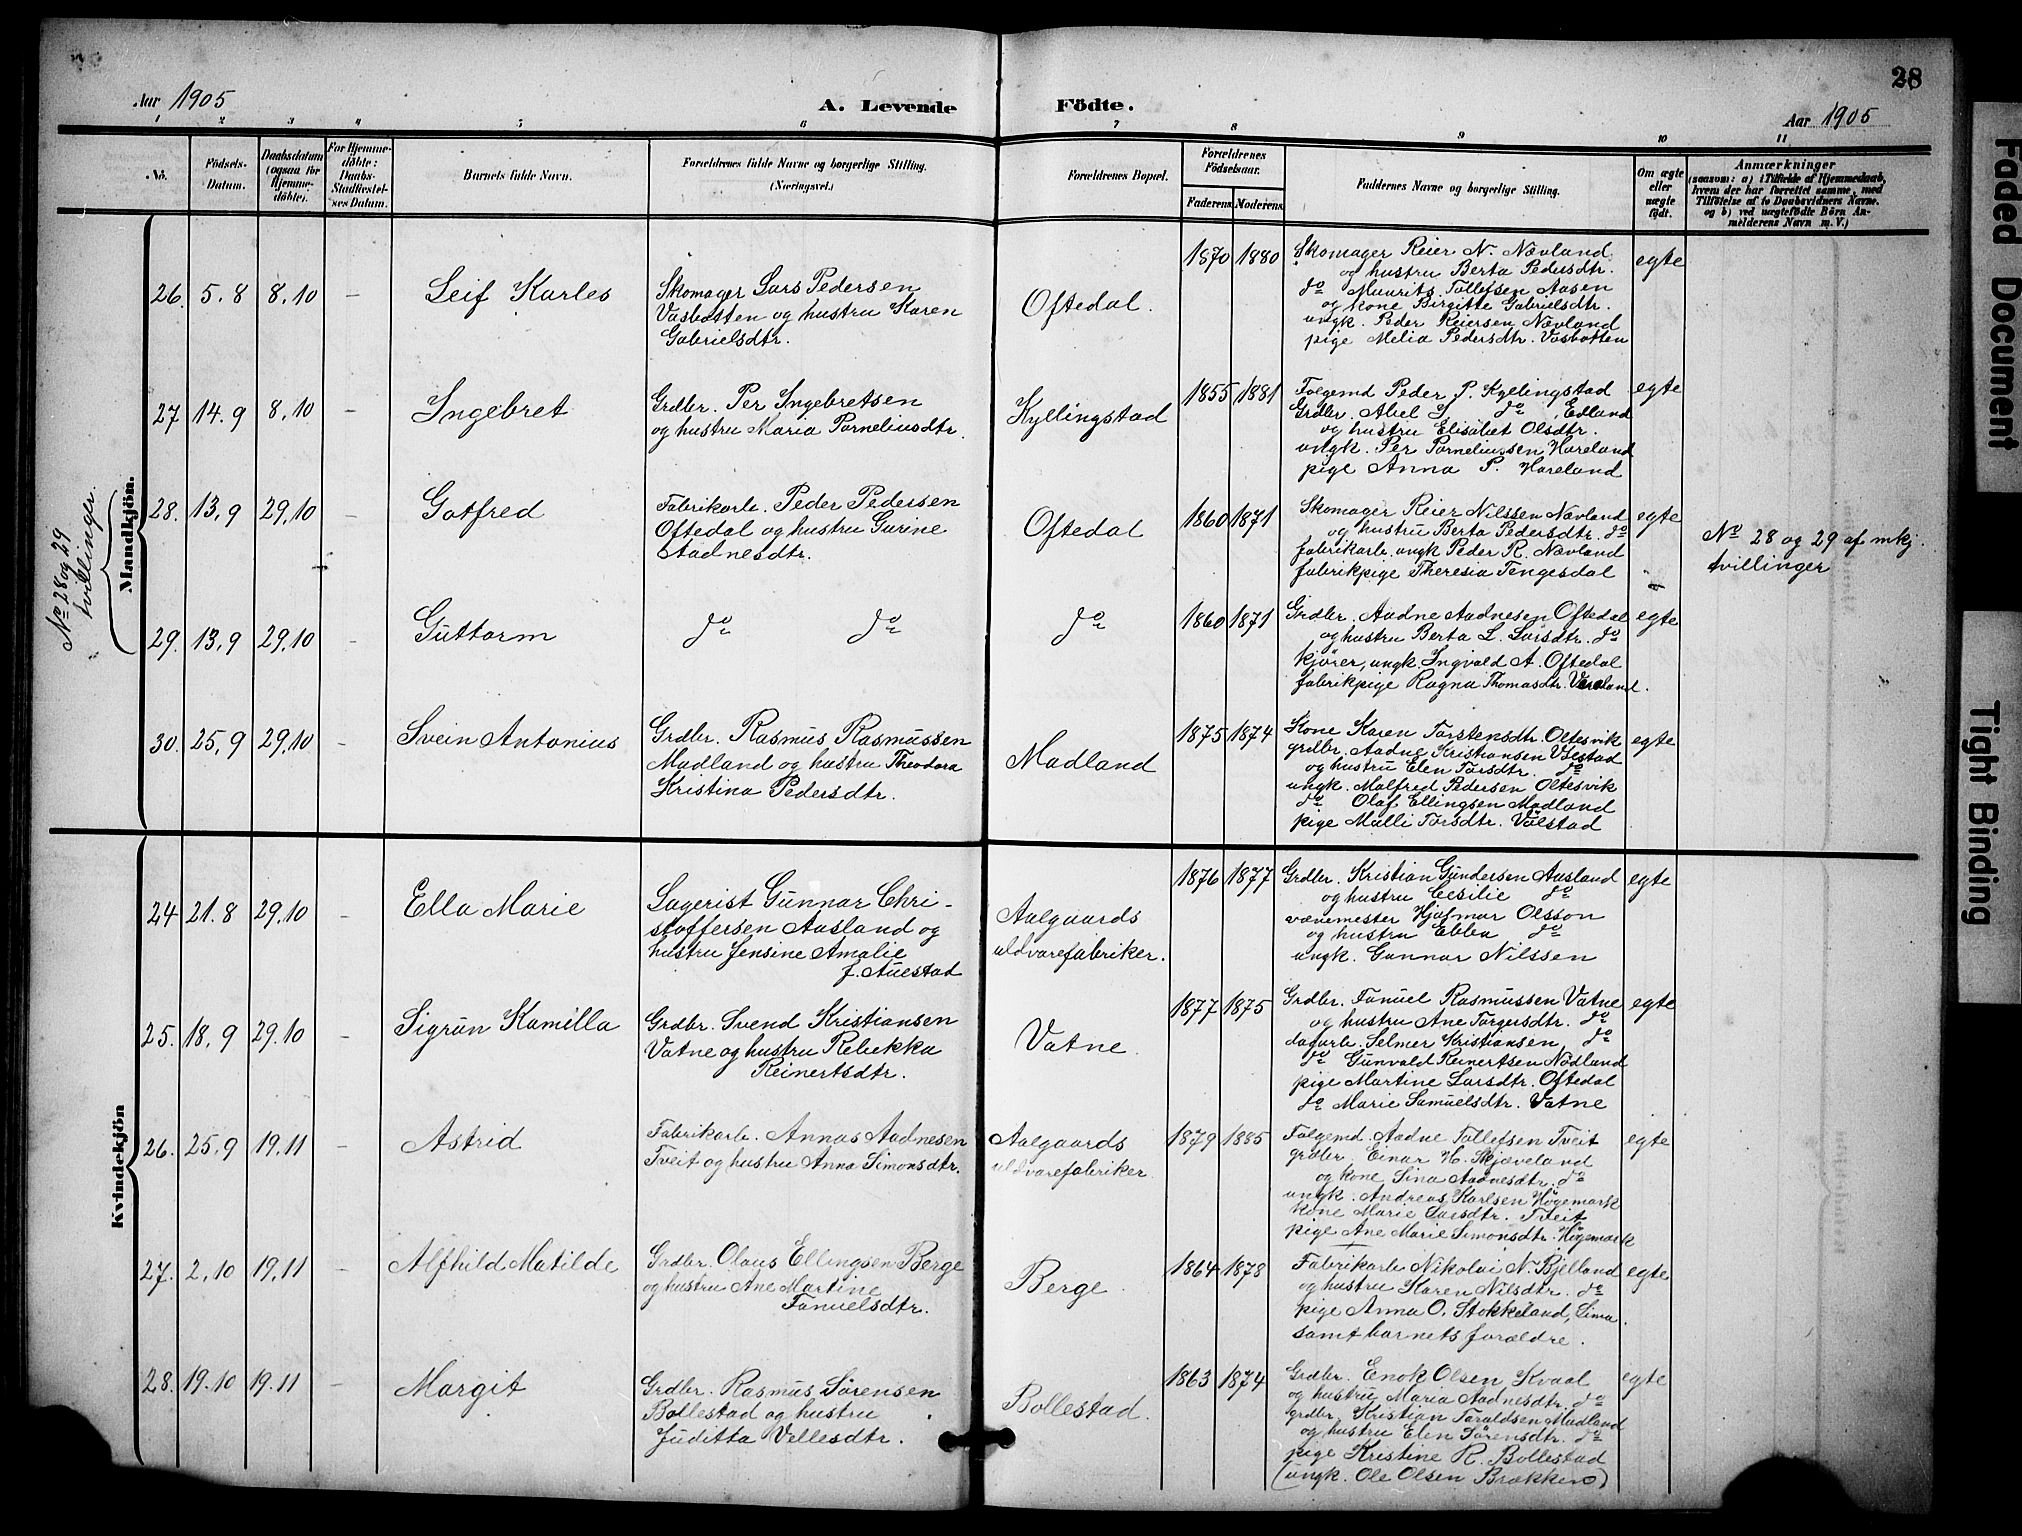 28
Aar 1905
A. Levende Födte.
Aar 1905
1 2 3 4 5 6 7 8 9 10 11
No.
Födsels-
Datum.
Daabsdatum
(ogsaa for
Hjemme-
döbte).
For Hjemme-
döbte:
Daabs-
Stadfæstel-
ses Datum.
Barnets fulde Navn.
Forældrenes fulde Navne og borgerlige Stilling.
(Næringsvei.)
Forældrenes Bopæl.
Forældrenes
Födselsaar.
Faderens Moderens
Faddernes Navne og borgerlige Stilling.
Om ægte
eller
uægte
födt.
Anmærkninger
(saasom: a) i Tilfælde af Hjemmedaab,
hvem der har forrettet samme, med
Tilföielse af to Daabsvidners Navne.
og b) ved uægtefödte Börn An-
melderens Navn m. V.)
Mandkjön.
No 28 og 29
tvillinger.
26. 5.8 8.10 - Leif Karles
Skomager Lars Pedersen
Vasbotten og hustru Karen
Gabrielsdtr.
Oftedal.
1870 1880
Skomager Reier N. Nævland
og hustru Berta Pedersdtr.
do Maurits Tollefsen Aasen
og kone Birgitte Gabrielsdtr.
ungk. Peder Reiersen Nævland
pige Melia Pedersdtr. Vasbotten
egte
27 14.9 8.10 - Ingebret
Grdbr. Per Ingebretsen
og hustru Maria Pornelius­dtr.
Kyllingstad
1855 1881
Folgemd Peder P. Kyllingstad
Grdbr. Abel I. do Edland
og hustru Elisabet Olsdtr.
ungk. Per Porneliussen Hareland
pige Anna P. Hareland
egte
28. 13.9 29.10 - Gotfred
Fabrikarb. Peder Pedersen
Oftedal og hustru Gurine
Aadnesdtr.
Oftedal
1860 1871
Skomager Reier Nilssen Nævland
og hustru Berta Pedersdtr. do
fabrikarb. ungk Peder R. Nævland
fabrikpige Theresia Tengesdal
egte
No 28 og 29 af mkj.
tvillinger
29. 13.9 29.10 - Guttorm
do do
do
1860 1871
Grdbr. Aadne Aadnesen Oftedal
og hustru Berta L. Larsdtr. do
kjører, ungk. Ingvald A. Oftedal
fabrikpige Ragna Thomasdtr.
egte
30. 25.9 29.10 - Svein Antonius
Grdbr. Rasmus Rasmussen
Madland og hustru Theodora
Kristina Pedersdtr.
Madland
1875 1874
Kone Karen Torstensdtr. Oltesvik
grdbr. Aadne Kristiansen Vølstad
og hustru Elen Torsdtr. do
ungk. Malfred Pedersen Oltesvik
do Olaf Ellingsen Madland
pige Malli Torsdtr. Vølstad
egte
Kvindekjön
24 21.8 29.10 - Ella Marie
Lagerist Gunnar Chri-
stoffersen Aasland og
hustru Jensine Amalie
f. Auestad
Aalgaards
uldvarefabriker.
1876 1877
Grdbr. Kristian Gundersen Aasland
og hustru Cesilie do
vævemester Hjalmar Olsson
og hustru Ebba do
ungk. Gunnar Nilssen
egte
25. 18.9 29.10 - Sigrun Kamilla
Grdbr. Svend Kristiansen
Vatne og hustru Rebekka
Reinertsdtr.
Vatne.
1877 1875
Grdbr. Fanuel Rasmussen Vatne
og hustru Ane Torgersdtr. do
dagarb. Selmer Kristiansen do
do Gunvald Reinertsen Nødland
pige Martine Larsdtr. Oftedal
do Marie Samuelsdtr. Vatne
egte
26. 25.9 19.11 - Astrid
Fabrikarb. Annas Aadnesen
Tveit og hustru Anna Simonsdtr.
Aalgaards
uldvarefabriker
1879 1885
Folgemd. Aadne Tollefsen Tveit
grdbr. Einar H. Skjæveland
og kone Sina Aadnesdtr. do
ungk. Andreas Karlsen Høgemark
kone Marie Larsdtr. Tveit
pige Ane Marie Simonsdtr. Høgemark
egte
27. 2.10 19.11 - Alfhild Matilde
Grdbr. Olaus Ellingsen Berge
og hustru Ane Martine
Fanuelsdtr.
Berge
1864 1878
Fabrikarb Nikolai N. Bjelland
og hustru Karen Nilsdtr. do
pige Anna O. Stokkeland, Lima.
samt barnets forældre.
egte
28. 19.10 19.11 - Margit
Grdbr. Rasmus Sørensen
Bollestad og hustru
Juditta Vellesdtr.
Bollestad.
1863 1874
Grdbr. Enok Olsen Kvaal
og hustru Maria Aadnesdtr. do
grdbr. Kristian Toraldsen Madland
og hustru Elen Sørensdtr. do
pige Kristine R. Bollestad
(ungk. Ole Olsen Brækken)
egte
Faded Document
Tight Binding